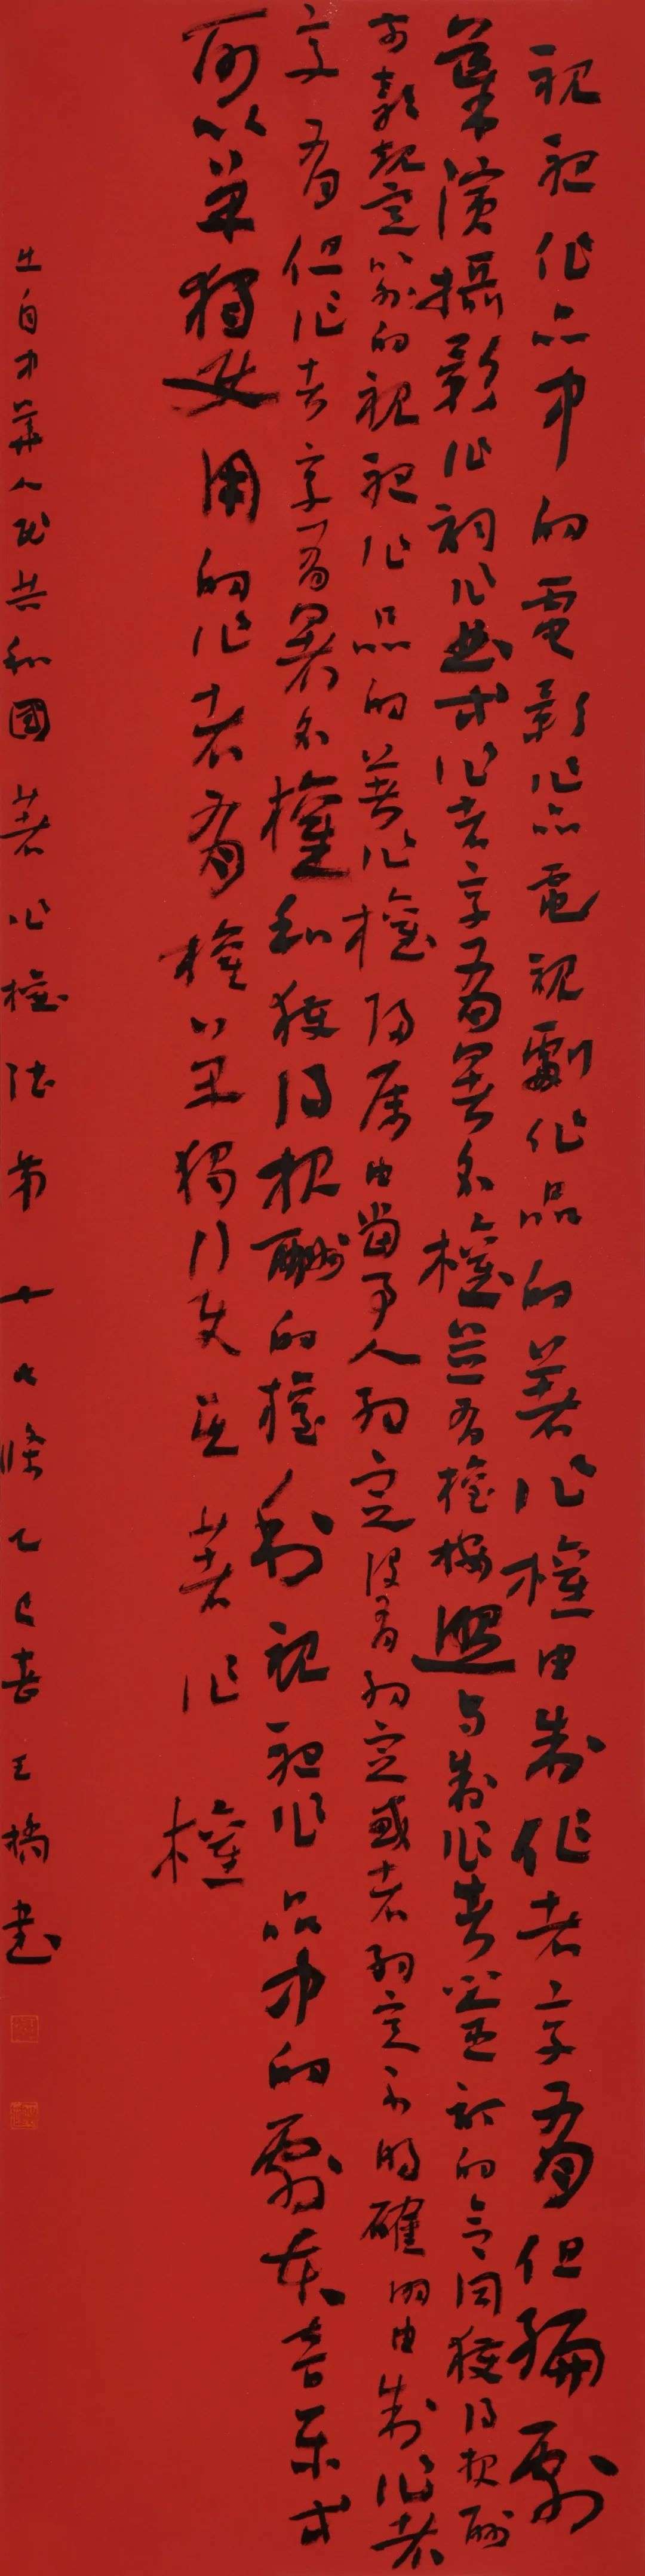 視聽作品中的電影作品電視劇作品的著作權由制作者享有但編劇
導演攝影作詞作曲等作者享有署名權並有權按照與制作者簽訂的合同獲得報酬
前款規定以外的視聽作品的著作權歸屬由當事人約定沒有約定或者約定不明確的由制作者
享有但作者享有署名權和獲得報酬的權利視聽作品中的劇本音樂等
可以單獨使用的作品的作者有權單獨行使其著作權
出自中華人民共和國著作權法第十七條乙巳春王楠書